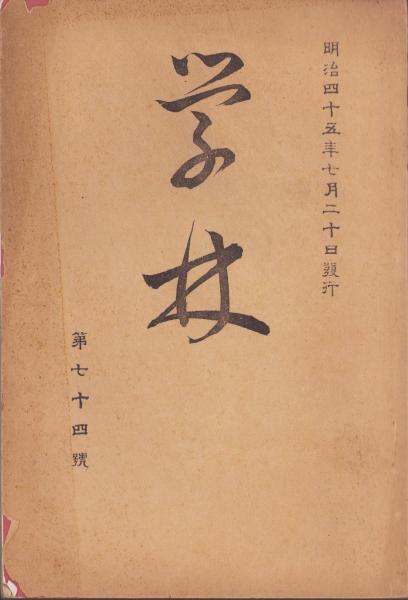 明治四十五年七月二十日發行
学林
第七十四號